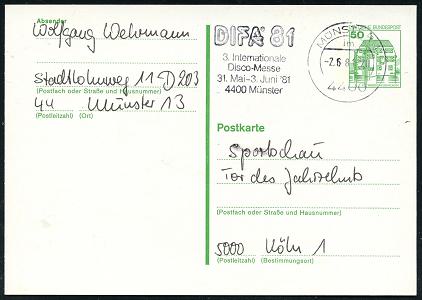 Absender
Wolfgang Wehrmann
Stadtlohnweg 11 D203
(Postfach oder Straße und Hausnummer)
44 Münster 13
(Postleitzahl) (Ort)
DIFA 81
3. Internationale
Disco-Messe
31. Mai-3. Juni '81
4400 Münster
MÜNSTER
-2.6.8
4400
50
BUNDESPOST
Postkarte
Sportschau
Tor des Jahrzehnts
(Postfach oder Straße und Hausnummer)
5000 Köln 1
(Postleitzahl) (Bestimmungsort)